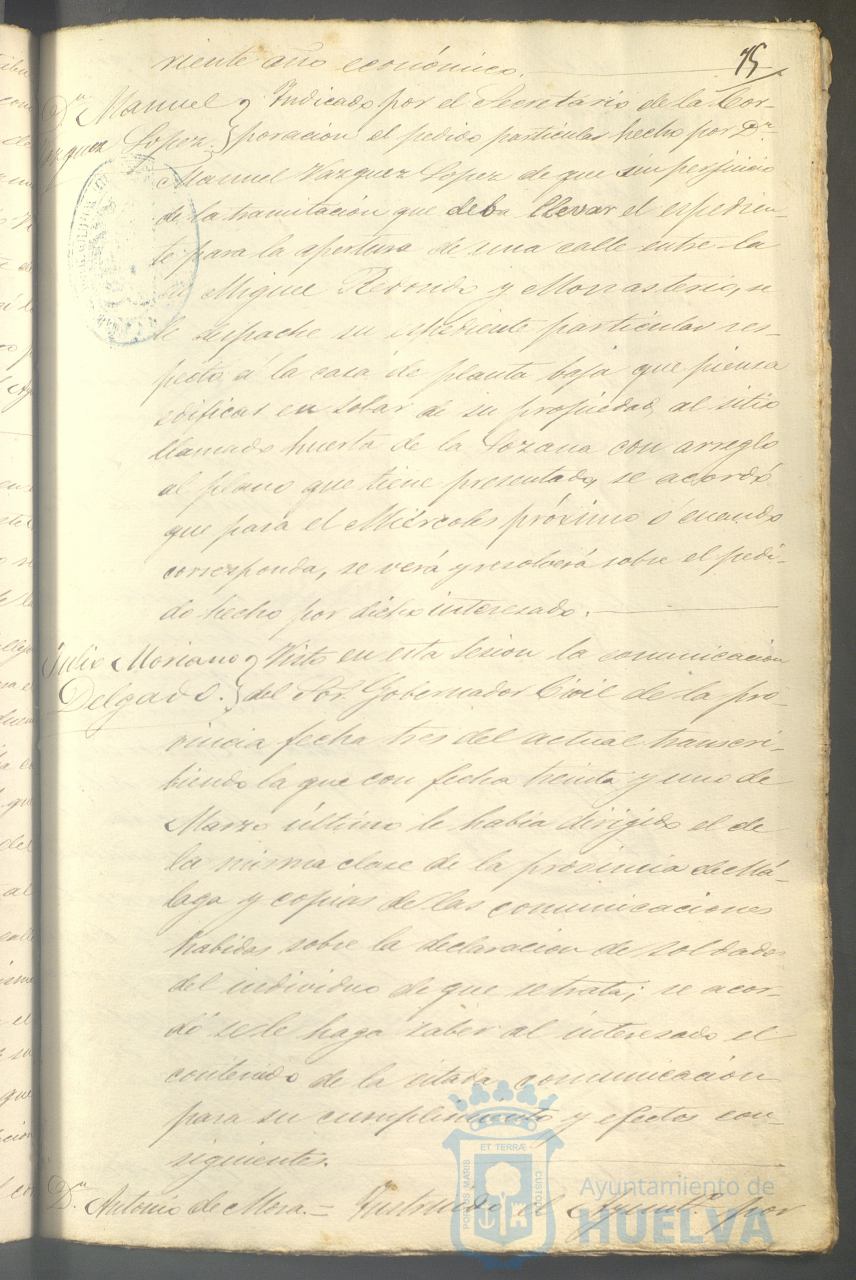 75
riente año económico.
Dn. Manuel Indicado por el Secretario de la Cor-
Lopez. poracion el pedido particular hecho por Dn.
Manuel Vazquez Lopez de que sin perjuicio
de la tramitación que deba llevar el espedien-
te para la apertura de una calle entre la
Miguel Redondo y Monasterio, se
le despache su espediente particular res-
pecto á la casa de planta baja que piensa
edificar en solar de su propiedad, al sitio
llamado huerta de la Lozana con arreglo
al plano que tiene presentado, se acordó
que para el Miércoles próximo ó cuando
corresponda, se verá y resolverá sobre el pedi-
do hecho por dicho interesado.
Julio Moriano Visto en esta sesion la comunicación
Delgado. del Sor. Gobernador Civil de la pro-
vincia fecha tres del actual transcri-
biendo la que con fecha treinta y uno de
Marzo último le habia dirigido el de
la misma clase de la provincia de Má-
laga y copias de las comunicaciones
habidas sobre la declaracion de soldado
del individuo de que se trata; se acor-
dó se le haga saber al interesado el
contenido de la citada comunicación
para su cumplimiento y efectos con-
siguientes.
Dn. Antonio de Mora. = Instruido el Ayuntº. por
PORTUS MARIS ET TERRÆ CUSTODIA
Ayuntamiento de
HUELVA